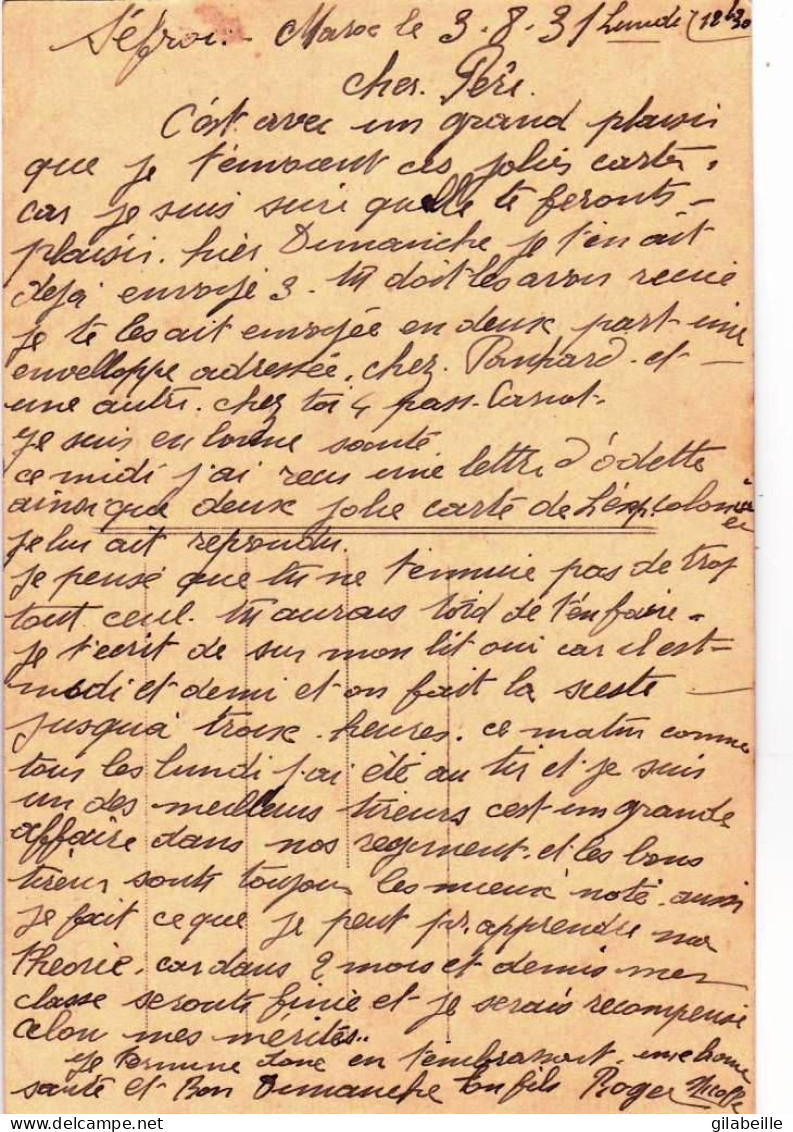 Séfrou - Maroc le 3-8-31 Lundi 12h30
Cher. Père.
C'est avec un grand plaisir
que je t'envoient ces jolies carte,
car je suis sure quelle te feronts
plaisir. hièr Dimanche je t'en ait
deja envoyé 3. tu doit les avoir recue
je te les ait envoyée en deux part une
envelloppe adressée. chez. et
une autre. chez toi 4 pass. Carnot.
Je suis en bonne santé
ce midi j'ai recu une lettre d'odette
ainsi que deux jolie carte de L'exp. coloniale
je lui ait repondu.
Je pense que tu ne t'ennuie pas de trop
tout ceul. tu aurais tord de t'en faire.
je t'ecrit de sur mon lit oui car il est
midi et demi et on fait la sieste
jusqua troix. heures. ce matin comme
tous les lundi j'ai été au tir et je suis
un des meilleurs tireurs c'est un grande
affaire dans nos regiment. et les bons
tireur sonts toujour les mieux noté. aussi
je fait ce que je peut pr. apprendre ma
theorie. car dans 2 mois et demis mes
classe seronts finie et je serais recompensé
celon mes mérités..
Je termine donc en t'embrassant. une bonne
santé et Bon Dimanche ton fils Roger
gilabeille